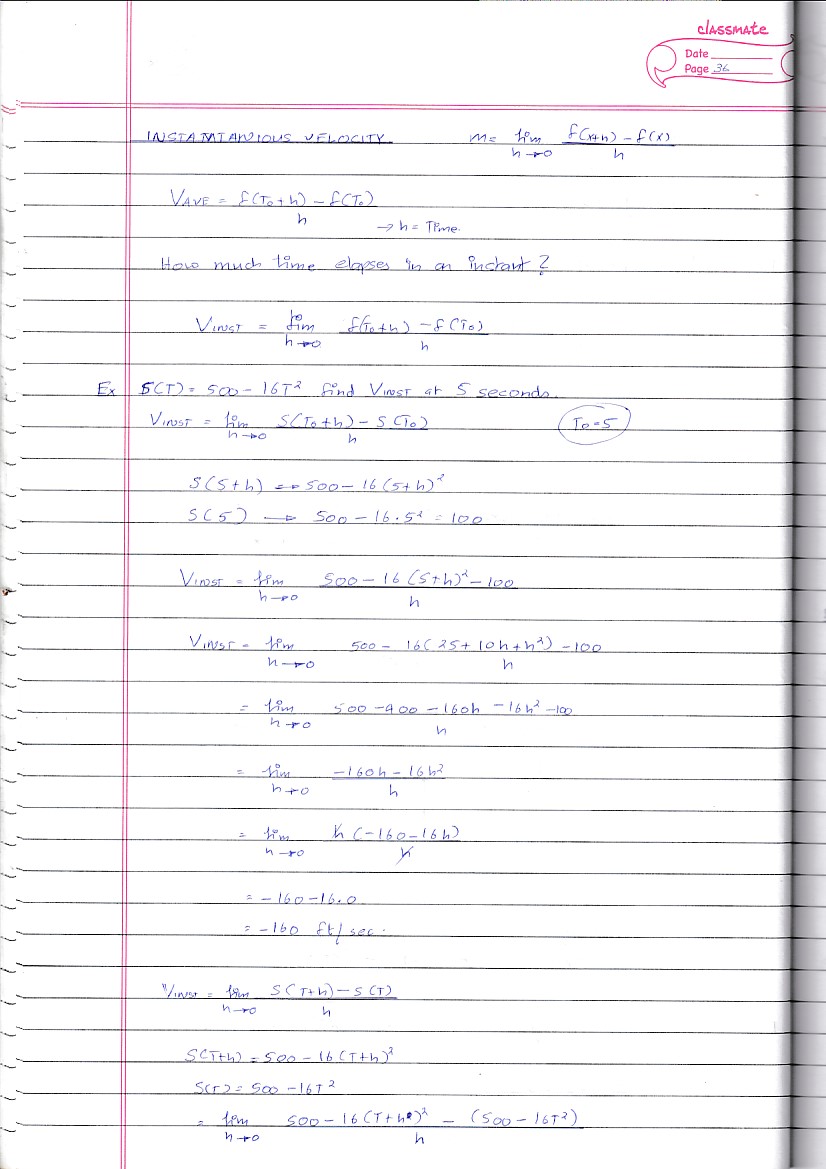 classmate
Date
Page 36
INSTANTANIOUS VELOCITY m= lim h→0 f(x+h) - f(x) / h
VAVE = f(T₀+h) - f(T₀) / h
→ h = Time.
How much time elapses in an instant?
VINST = lim h→0 f(T₀+h) - f(T₀) / h
Ex S(T) = 500 - 16T² find VINST at 5 seconds.
VINST = lim h→0 S(T₀+h) - S(T₀) / h T₀=5
S(5+h) → 500 - 16(5+h)²
S(5) → 500 - 16.5² = 100
VINST = lim h→0 500 - 16(5+h)² - 100 / h
VINST = lim h→0 500 - 16(25+10h+h²) - 100 / h
= lim h→0 500 - 400 - 160h - 16h² - 100 / h
= lim h→0 -160h - 16h² / h
= lim h→0 h(-160 - 16h) / h
= -160 - 16.0
= -160 ft/sec.
VINST = lim h→0 S(T+h) - S(T) / h
S(T+h) = 500 - 16(T+h)²
S(T) = 500 - 16T²
= lim h→0 500 - 16(T+h)² - (500 - 16T²) / h